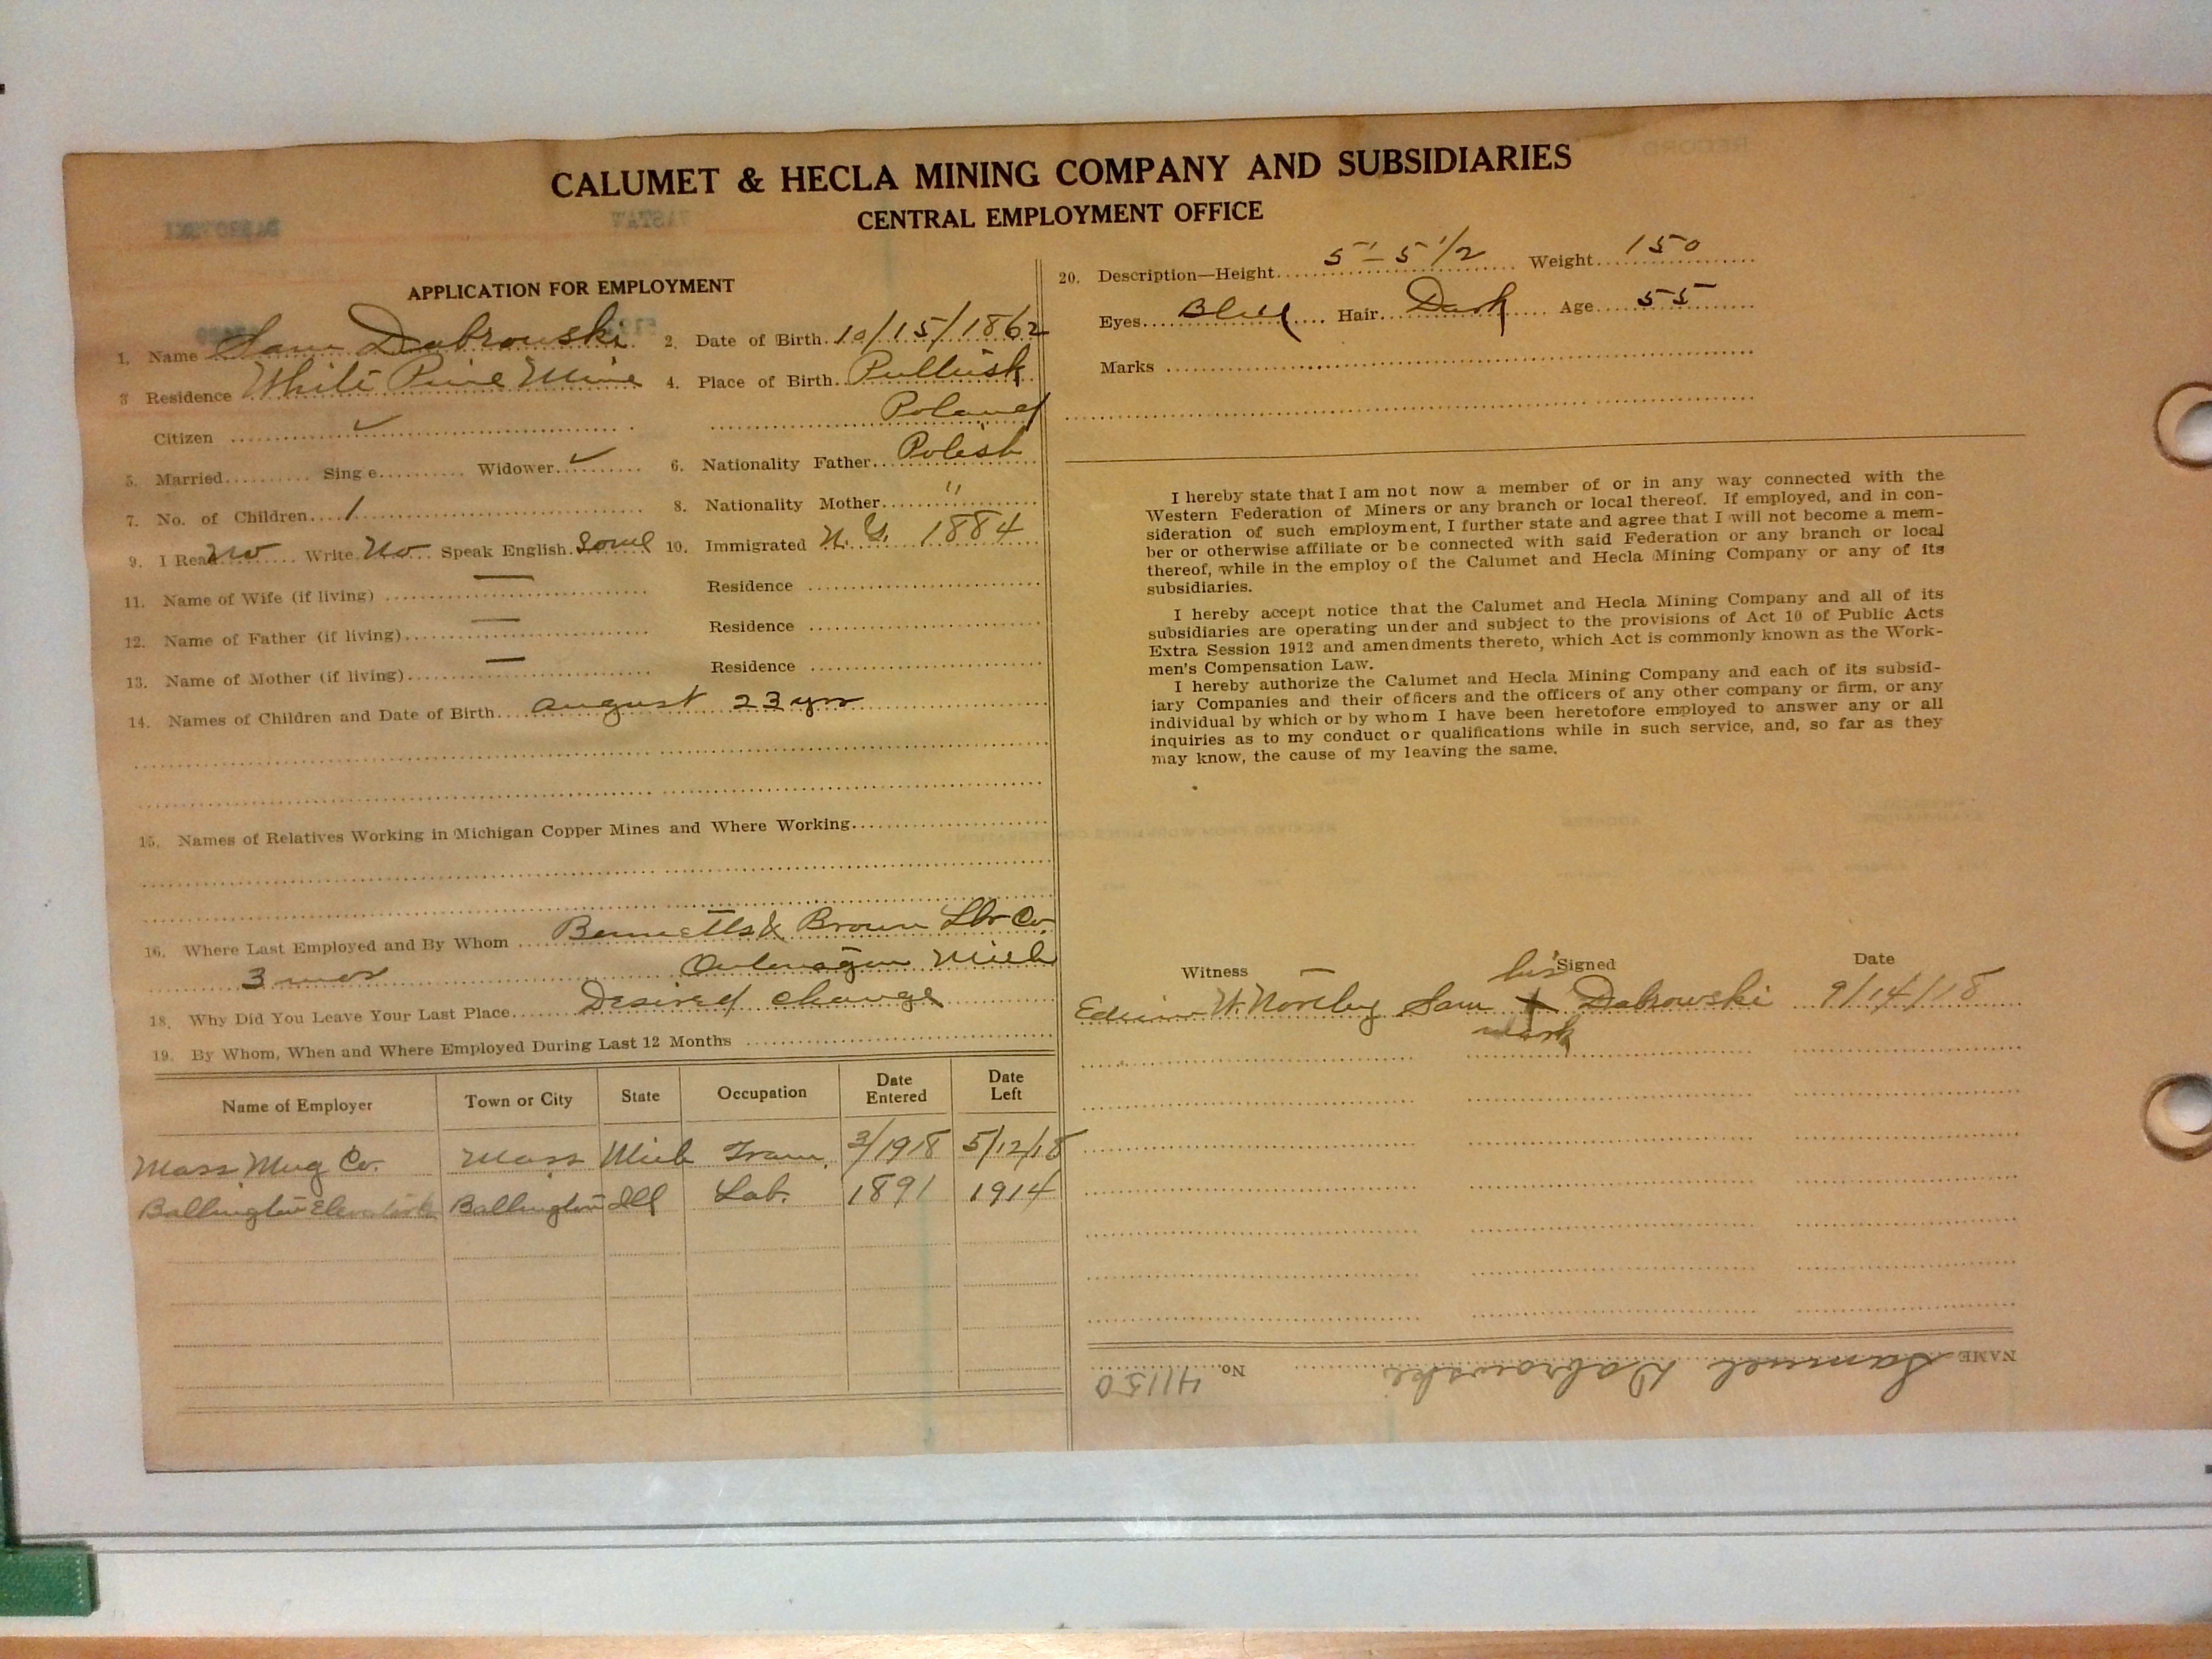 CALUMET & HECLA MINING COMPANY AND SUBSIDIARIES
CENTRAL EMPLOYMENT OFFICE
APPLICATION FOR EMPLOYMENT
1. Name Sam Dabrowski 2. Date of Birth 10/15/1862
3 Residence White Pine Mine 4. Place of Birth Pultusk
Citizen ✓ Poland
5. Married Sing e Widower ✓ 6. Nationality Father Polish
7. No. of Children 1 8. Nationality Mother "
9. I Read No Write No Speak English Some 10. Immigrated N. Y. 1884
11. Name of Wife (if living) — Residence
12. Name of Father (if living) — Residence
13. Name of Mother (if living) — Residence
14. Names of Children and Date of Birth August 23 yrs
15. Names of Relatives Working in Michigan Copper Mines and Where Working
16. Where Last Employed and By Whom & Brown Lbr Co.
3 mos Ontonagon Mich
18. Why Did You Leave Your Last Place Desired change
19. By Whom, When and Where Employed During Last 12 Months
Name of Employer Town or City State Occupation Date Entered Date Left
Mass Mng Co. Mass Mich Tram. 3/1918 5/12/18
Ballington Ballington Ill Lab. 1891 1914
20. Description—Height 5'-5 1/2 Weight 150
Eyes Blue Hair Dark Age 55
Marks
I hereby state that I am not now a member of or in any way connected with the
Western Federation of Miners or any branch or local thereof. If employed, and in con-
sideration of such employment, I further state and agree that I will not become a mem-
ber or otherwise affiliate or be connected with said Federation or any branch or local
thereof, while in the employ of the Calumet and Hecla Mining Company or any of its
subsidiaries.
I hereby accept notice that the Calumet and Hecla Mining Company and all of its
subsidiaries are operating under and subject to the provisions of Act 10 of Public Acts
Extra Session 1912 and amendments thereto, which Act is commonly known as the Work-
men's Compensation Law.
I hereby authorize the Calumet and Hecla Mining Company and each of its subsid-
iary Companies and their officers and the officers of any other company or firm, or any
individual by which or by whom I have been heretofore employed to answer any or all
inquiries as to my conduct or qualifications while in such service, and, so far as they
may know, the cause of my leaving the same.
Witness his Signed Date
Edwin W. Sam X Dabrowski 9/14/18
mark
NAME Samuel Dabrowski No. 41150